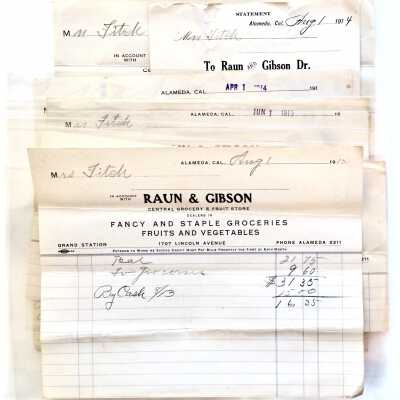 STATEMENT
Alameda, Cal. Aug 1 1914
Mrs Fitch
Mrs Fitch
IN ACCOUNT WITH
To Raun AND Gibson Dr.
ALAMEDA, CAL. APR 1 1914 191
Mrs Fitch
ALAMEDA, CAL. JUN 1 1913 19
ALAMEDA, CAL. Aug 1 191
Mrs Fitch
IN ACCOUNT WITH
RAUN & GIBSON
CENTRAL GROCERY & FRUIT STORE
DEALERS IN
FANCY AND STAPLE GROCERIES
FRUITS AND VEGETABLES
GRAND STATION 1707 LINCOLN AVENUE PHONE ALAMEDA 2211
21 75
To Groceries 9 60
$31 35
By Cash 8/13 15 00
16 35